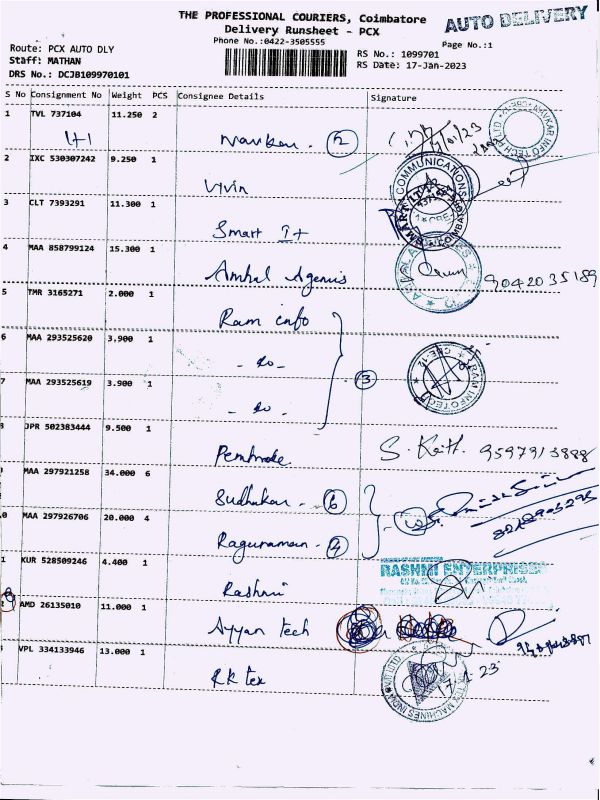 THE PROFESSIONAL COURIERS, Coimbatore
AUTO DELIVERY
Delivery Runsheet - PCX
Phone No.:0422-3505555
Page No.:1
Route: PCX AUTO DLY
Staff: MATHAN
DRS No.: DCJB109970101
RS No.: 1099701
RS Date: 17-Jan-2023
S No Consignment No Weight PCS Consignee Details Signature
1 TVL 737104 11.250 2
1+1 Navkar. 2
2 IXC 530307242 9.250 1
Vivin
COMMUNICATIONS
3 CLT 7393291 11.300 1
Smart It
SMART IT
4 MAA 858799124 15.300 1
9042035189
5 TMR 3165271 2.000 1
Ram info
6 MAA 293525620 3.900 1
- do -
7 MAA 293525619 3.900 1
- do -
3
RAM INFOTECH
JPR 502383444 9.500 1
Pembroke
MAA 297921258 34.000 6
Sudhakar - 6
0 MAA 297926706 20.000 4
Raguraman - 4
1 KUR 528509246 4.400 1
RASHMI ENTERPRISES
Rashmi
AMD 26135010 11.000 1
Ayyan tech
VPL 334133946 13.000 1
RK tex
17.1.23